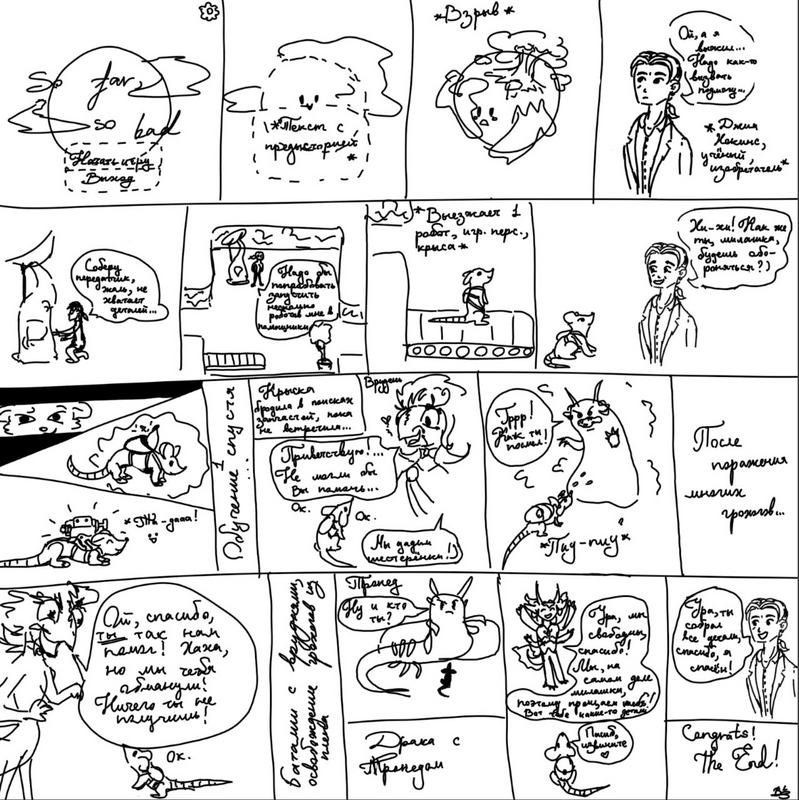 So far,
so bad
Начать игру
Выход
*Текст с
предысторией
*
*Взрыв*
Ой, а я
выжил...
Надо как-то
вызвать
подмогу...
*Джим
Хокинс,
учёный,
изобретатель*
Соберу
передатчик,
жаль, не
хватает
деталей...
Надо бы
попробовать
запустить
несколько
роботов мне в
помощники
*Выезжает 1
робот, игр. перс.,
крыса*
Хи-хи! Как же
ты, милашка,
будешь обо-
роняться?)
*Та-дааа!
Обучение... спустя
1
Крыска
бродила в поисках
запчастей, пока
не встретила...
Вруден
Приветствую!...
Не могли бы
Вы помочь...
Ок.
Ок.
Мы дадим
шестерёнки!)
Гррр!
попал!
*Пиу-пиу*
После
поражения
многих
грохогов...
Ой, спасибо,
ты так нам
помог! Хаха,
но мы тебя
обманули!
Ничего ты не
получишь!
Ок.
Баталии с врунами,
освобождение грохогов из
плена
Тропед
Ну и кто
ты?
Драка с
Тропедом
Ура, мы
свободны,
спасибо!
Мы, на
самом деле
милашки,
поэтому прощаем тебя!
Вот тебе какие-то детали
извините
Ура, ты
собрал
все детали,
спасибо, я
спасён!
Congrats!
The End!